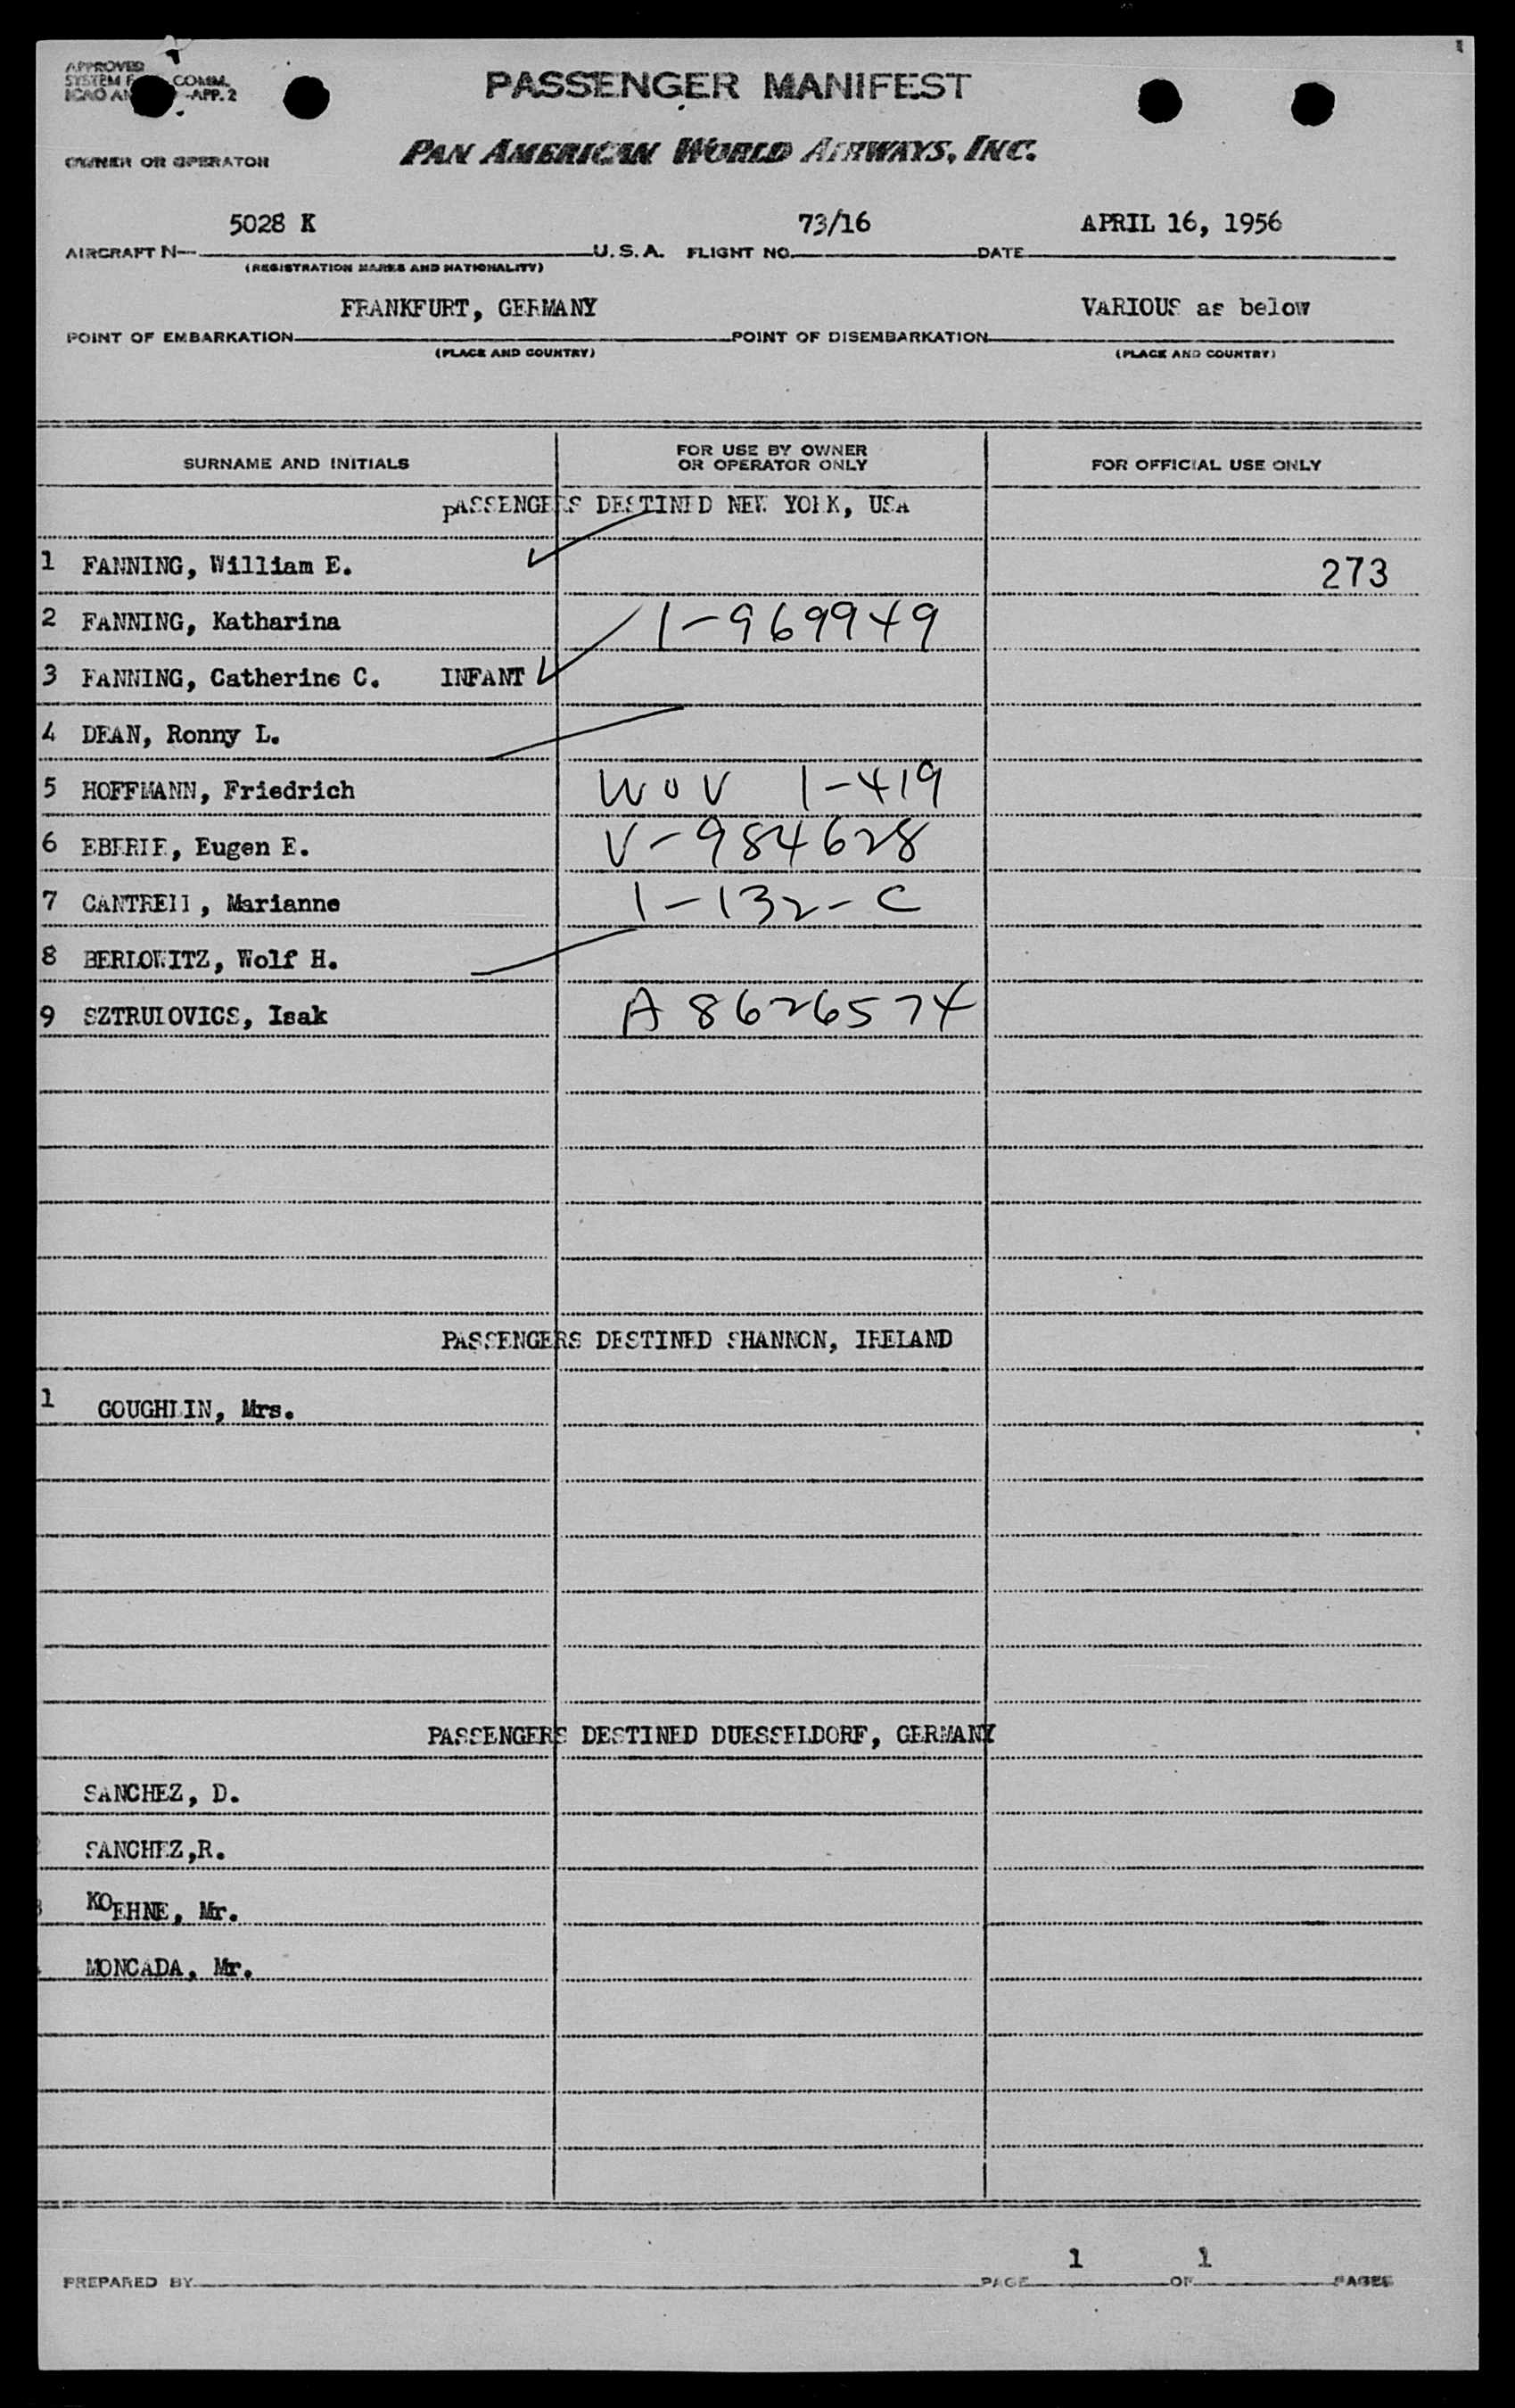 PASSENGER MANIFEST
APPROVED
SYSTEM COMM.
ICAO AN -APP. 2
OWNER OR OPERATOR PAN AMERICAN WORLD AIRWAYS, INC.
5028 K 73/16 APRIL 16, 1956
AIRCRAFT N— U.S.A. FLIGHT NO. DATE
(REGISTRATION MARKS AND NATIONALITY)
FRANKFURT, GERMANY VARIOUS as below
POINT OF EMBARKATION POINT OF DISEMBARKATION
(PLACE AND COUNTRY) (PLACE AND COUNTRY)
SURNAME AND INITIALS FOR USE BY OWNER OR OPERATOR ONLY FOR OFFICIAL USE ONLY
PASSENGERS DESTINED NEW YORK, USA
1 FANNING, William E. 273
2 FANNING, Katharina 1-969949
3 FANNING, Catherine C. INFANT
4 DEAN, Ronny L.
5 HOFFMANN, Friedrich WOV 1-419
6 EBERLE, Eugen E. V-984628
7 CANTRELL, Marianne 1-132-C
8 BERLOWITZ, Wolf H.
9 SZTRULOVICS, Isak A 8626574
PASSENGERS DESTINED SHANNON, IRELAND
1 COUGHLIN, Mrs.
PASSENGERS DESTINED DUESSELDORF, GERMANY
SANCHEZ, D.
SANCHEZ,R.
KOEHNE, Mr.
MONCADA, Mr.
1 1
PREPARED BY PAGE OF PAGES